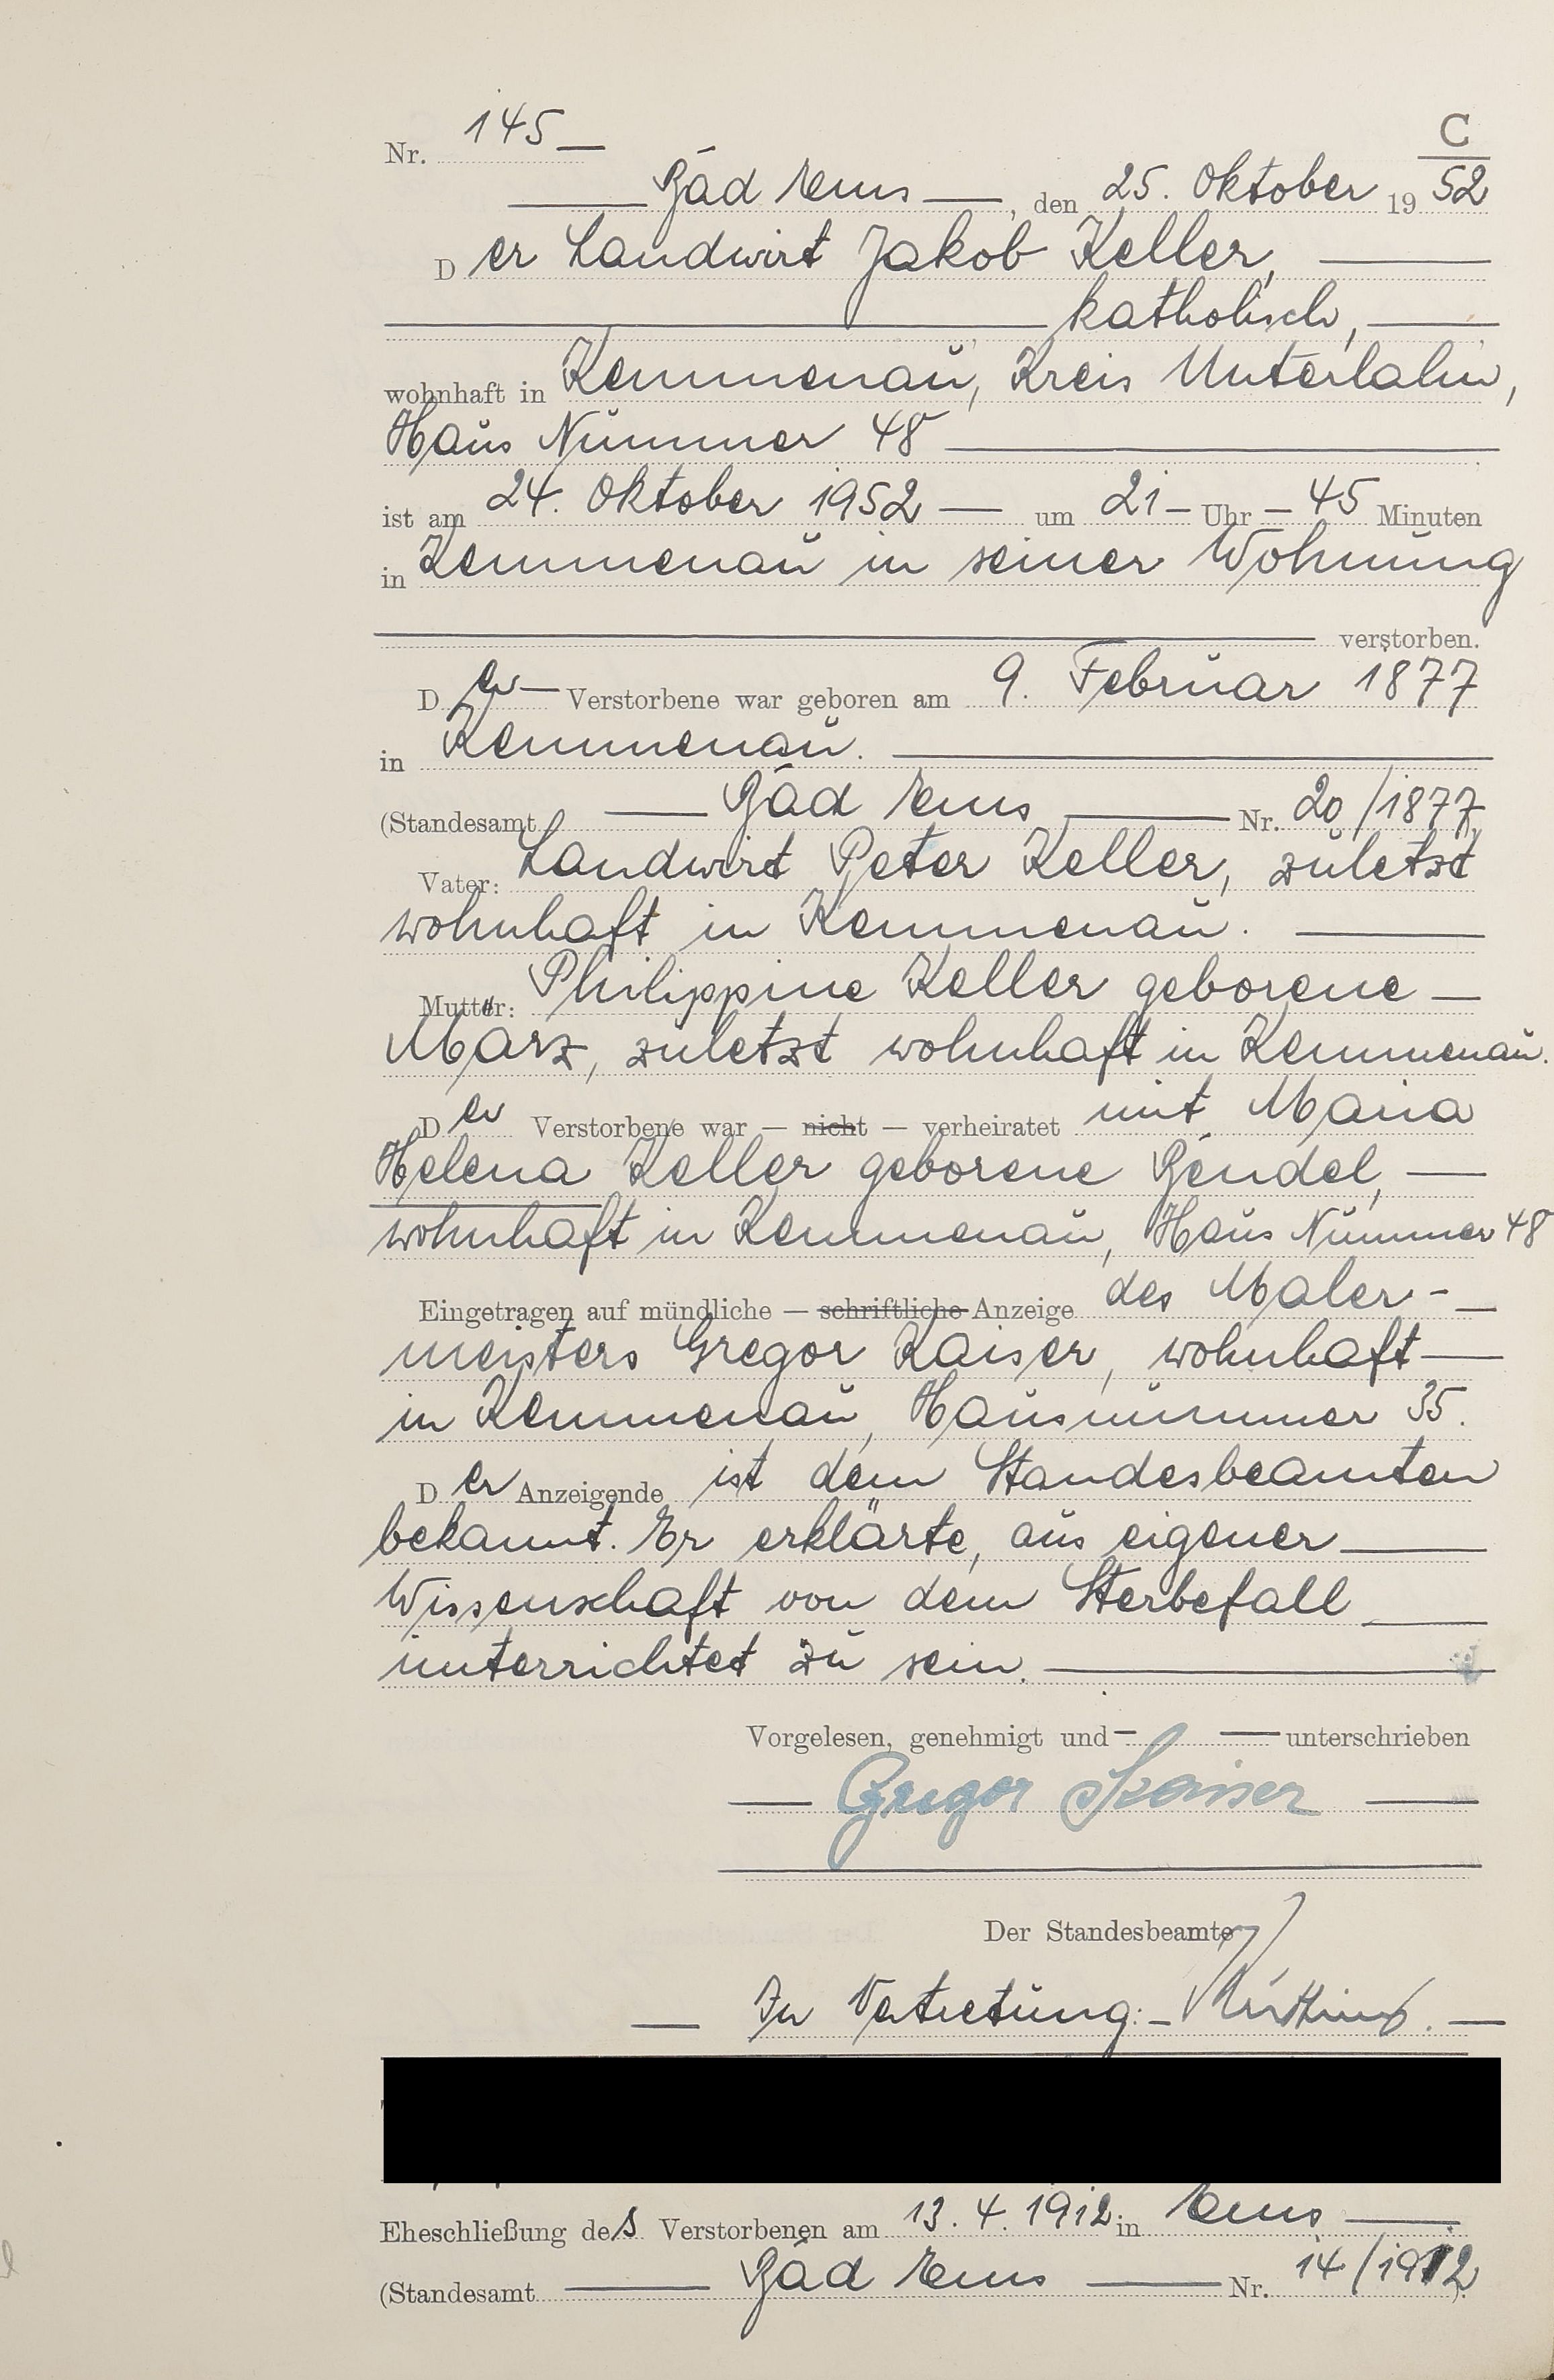 C
Nr. 145
Bad Ems, den 25. Oktober 1952
Der Landwirt Jakob Keller,
katholisch,
wohnhaft in Kemmenau, Kreis Unterlahn,
Haus Nummer 48
ist am 24. Oktober 1952 um 21 Uhr 45 Minuten
in Kemmenau in seiner Wohnung
verstorben.
Der Verstorbene war geboren am 9. Februar 1877
in Kemmenau.
(Standesamt Bad Ems Nr. 20/1877)
Vater: Landwirt Peter Keller, zuletzt
wohnhaft in Kemmenau.
Mutter: Philippine Keller geborene
Marz, zuletzt wohnhaft in Kemmenau.
Der Verstorbene war — nicht — verheiratet mit Maria
Helena Keller geborene Bendel,
wohnhaft in Kemmenau, Haus Nummer 48
Eingetragen auf mündliche — schriftliche Anzeige des Maler-
meisters Gregor Kaiser, wohnhaft
in Kemmenau, Hausnummer 35.
Der Anzeigende ist dem Standesbeamten
bekannt. Er erklärte, aus eigener
Wissenschaft von dem Sterbefall
unterrichtet zu sein.
Vorgelesen, genehmigt und unterschrieben
Gregor Kaiser
Der Standesbeamte
In Vertretung:
Eheschließung des Verstorbenen am 13.4.1912 in Ems
(Standesamt Bad Ems Nr. 14/1912).